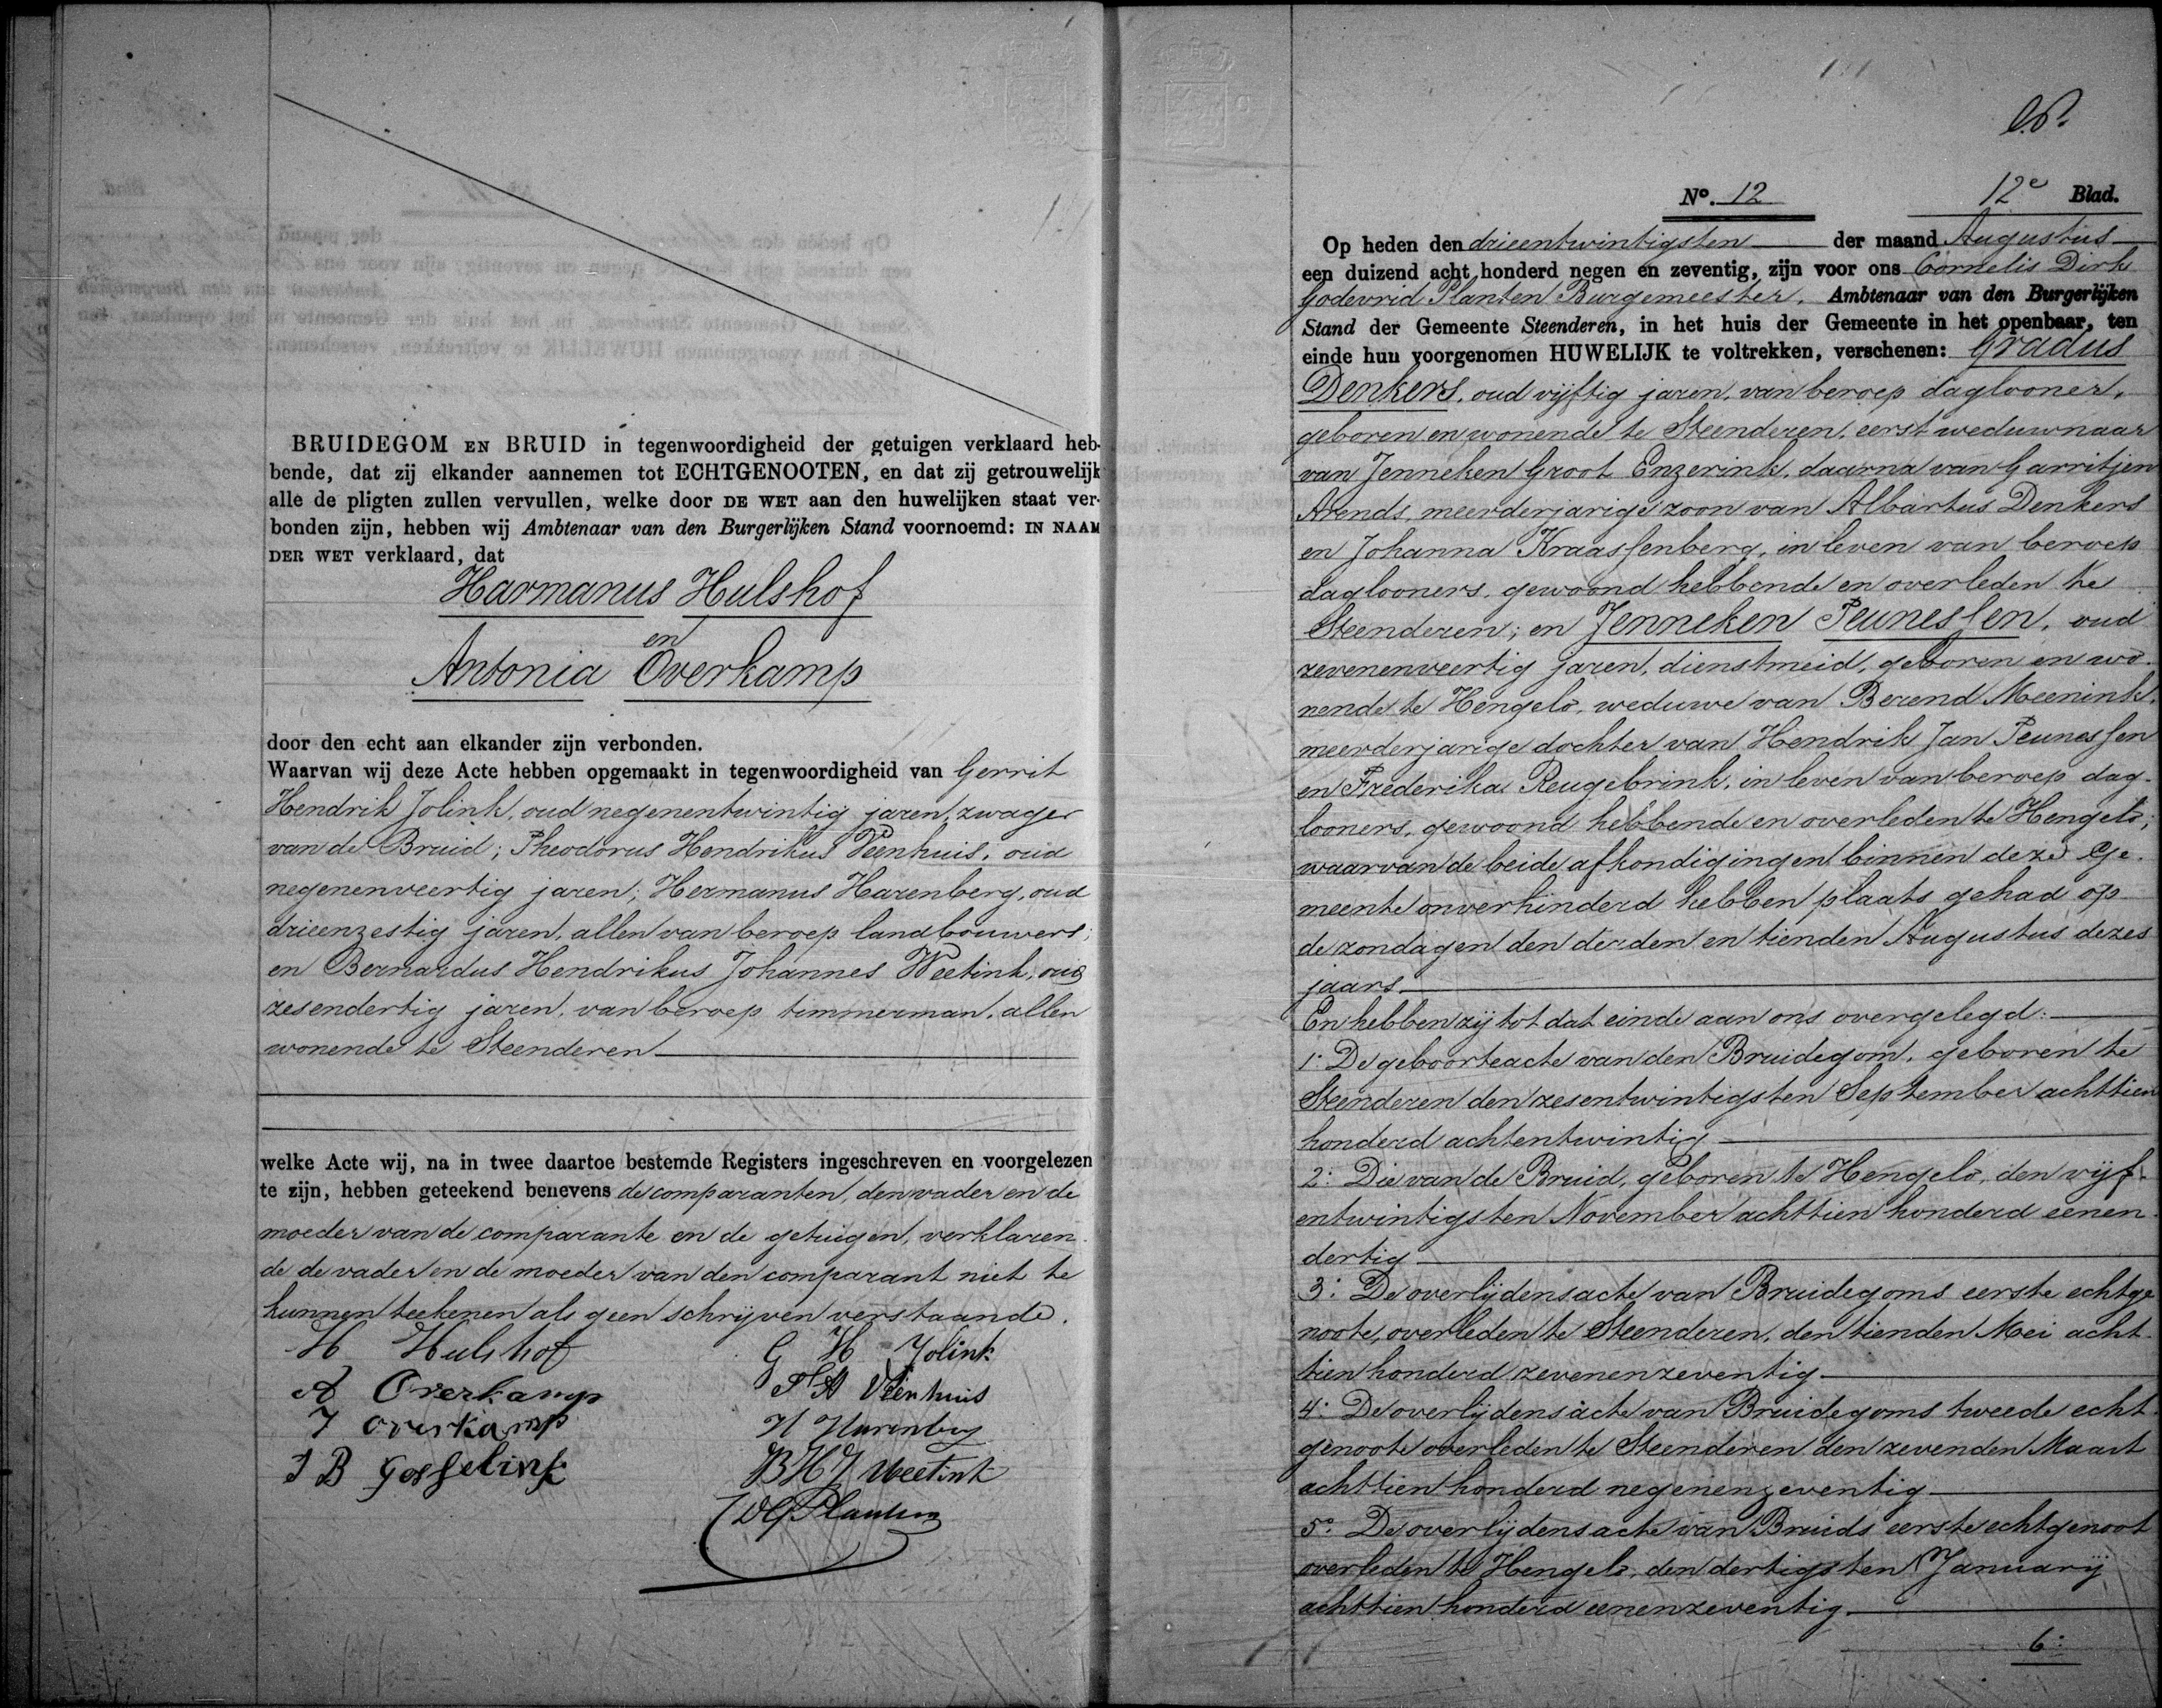 BRUIDEGOM EN BRUID in tegenwoordigheid der getuigen verklaard heb-
bende, dat zij elkander aannemen tot ECHTGENOOTEN, en dat zij getrouwelijk
alle de pligten zullen vervullen, welke door DE WET aan den huwelijken staat ver-
bonden zijn, hebben wij Ambtenaar van den Burgerlijken Stand voornoemd: IN NAAM
DER WET verklaard, dat
Harmanus Hulshof
en
Antonia Overkamp
door den echt aan elkander zijn verbonden.
Waarvan wij deze Acte hebben opgemaakt in tegenwoordigheid van Gerrit
Hendrik Jolink, oud negenentwintig jaren, zwager
van de Bruid; Theodorus Hendrikus Veenhuis, oud
negenenveertig jaren; Hermanus Harenberg, oud
drieenzestig jaren, allen van beroep landbouwers;
en Bernardus Hendrikus Johannes Weetink, oud
zesendertig jaren, van beroep timmerman, allen
wonende te Steenderen
welke Acte wij, na in twee daartoe bestemde Registers ingeschreven en voorgelezen
te zijn, hebben geteekend benevens de comparanten, den vader en de
moeder van de comparante en de getuigen, verklaren-
de de vader en de moeder van den comparant niet te
kunnen teekenen als geen schrijven verstaande.
H Hulshof
G H Jolink
A Overkamp
T H Veenhuis
J overkamp
H Harenberg
J B Gosselink
B H J Weetink
CDG Planten
No. 12
12e Blad.
Op heden den drieentwintigsten der maand Augustus
een duizend acht honderd negen en zeventig, zijn voor ons Cornelis Dirk
Godevrid Planten Burgemeester, Ambtenaar van den Burgerlijken
Stand der Gemeente Steenderen, in het huis der Gemeente in het openbaar, ten
einde hun voorgenomen HUWELIJK te voltrekken, verschenen: Gradus
Denkers, oud vijftig jaren, van beroep daglooner,
geboren en wonende te Steenderen, eerst weduwnaar
van Jenneken Groot Enzerink, daarna van Garritjen
Arends, meerderjarige zoon van Albartus Denkers
en Johanna Kraassenberg, in leven van beroep
daglooners, gewoond hebbende en overleden te
Steenderen; en Jenneken Teunessen, oud
zevenenveertig jaren, dienstmeid, geboren en wo-
nende te Hengelo, weduwe van Berend Meenink,
meerderjarige dochter van Hendrik Jan Teunessen
en Frederika Reugebrink, in leven van beroep dag-
looners, gewoond hebbende en overleden te Hengelo;
waarvan de beide afkondigingen binnen deze Ge-
meente onverhinderd hebben plaats gehad op
de zondagen den derden en tienden Augustus dezes
jaars.
En hebben zij tot dat einde aan ons overgelegd:
1: De geboorteacte van den Bruidegom, geboren te
Steenderen den zesentwintigsten September achttien
honderd achtentwintig
2: Die van de Bruid, geboren te Hengelo, den vijf-
entwintigsten November achttien honderd eenen-
dertig
3: De overlijdensacte van Bruidegoms eerste echtge
noote, overleden te Steenderen, den tienden Mei acht-
tien honderd zevenenzeventig
4: De overlijdensacte van Bruidegoms tweede echt-
genoote overleden te Steenderen den zevenden Maart
achttien honderd negenenzeventig
5: De overlijdensacte van Bruids eerste echtgenoot
overleden te Hengelo, den dertigsten Januarij
achttien honderd eenenzeventig
6: